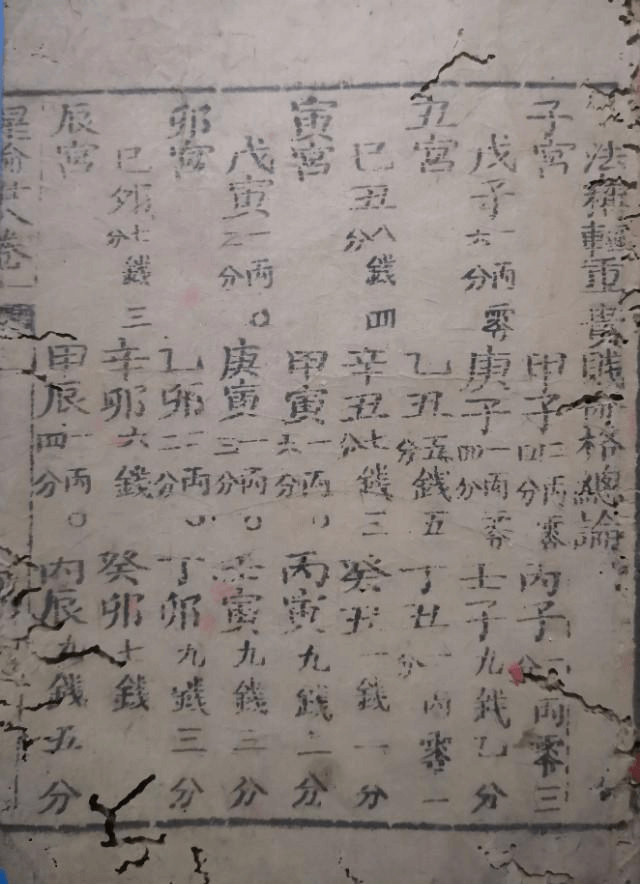 法稱輕重貴賤命格總論
子宮 甲子二兩零四分 丙子一兩零三分
戊子一兩零六分 庚子一兩零四分 壬子九錢乙分
丑宮 乙丑五錢五分 丁丑一兩零一分
己丑八錢四分 辛丑七錢三分 癸丑一錢一分
寅宮 甲寅一兩〇六分 丙寅九錢二分
戊寅一兩〇乙分 庚寅一兩〇三分 壬寅九錢三分
卯宮 乙卯二兩〇二分 丁卯九錢三分
己卯七錢三分 辛卯六錢 癸卯七錢
辰宮 甲辰一兩〇四分 丙辰九錢五分
卷一